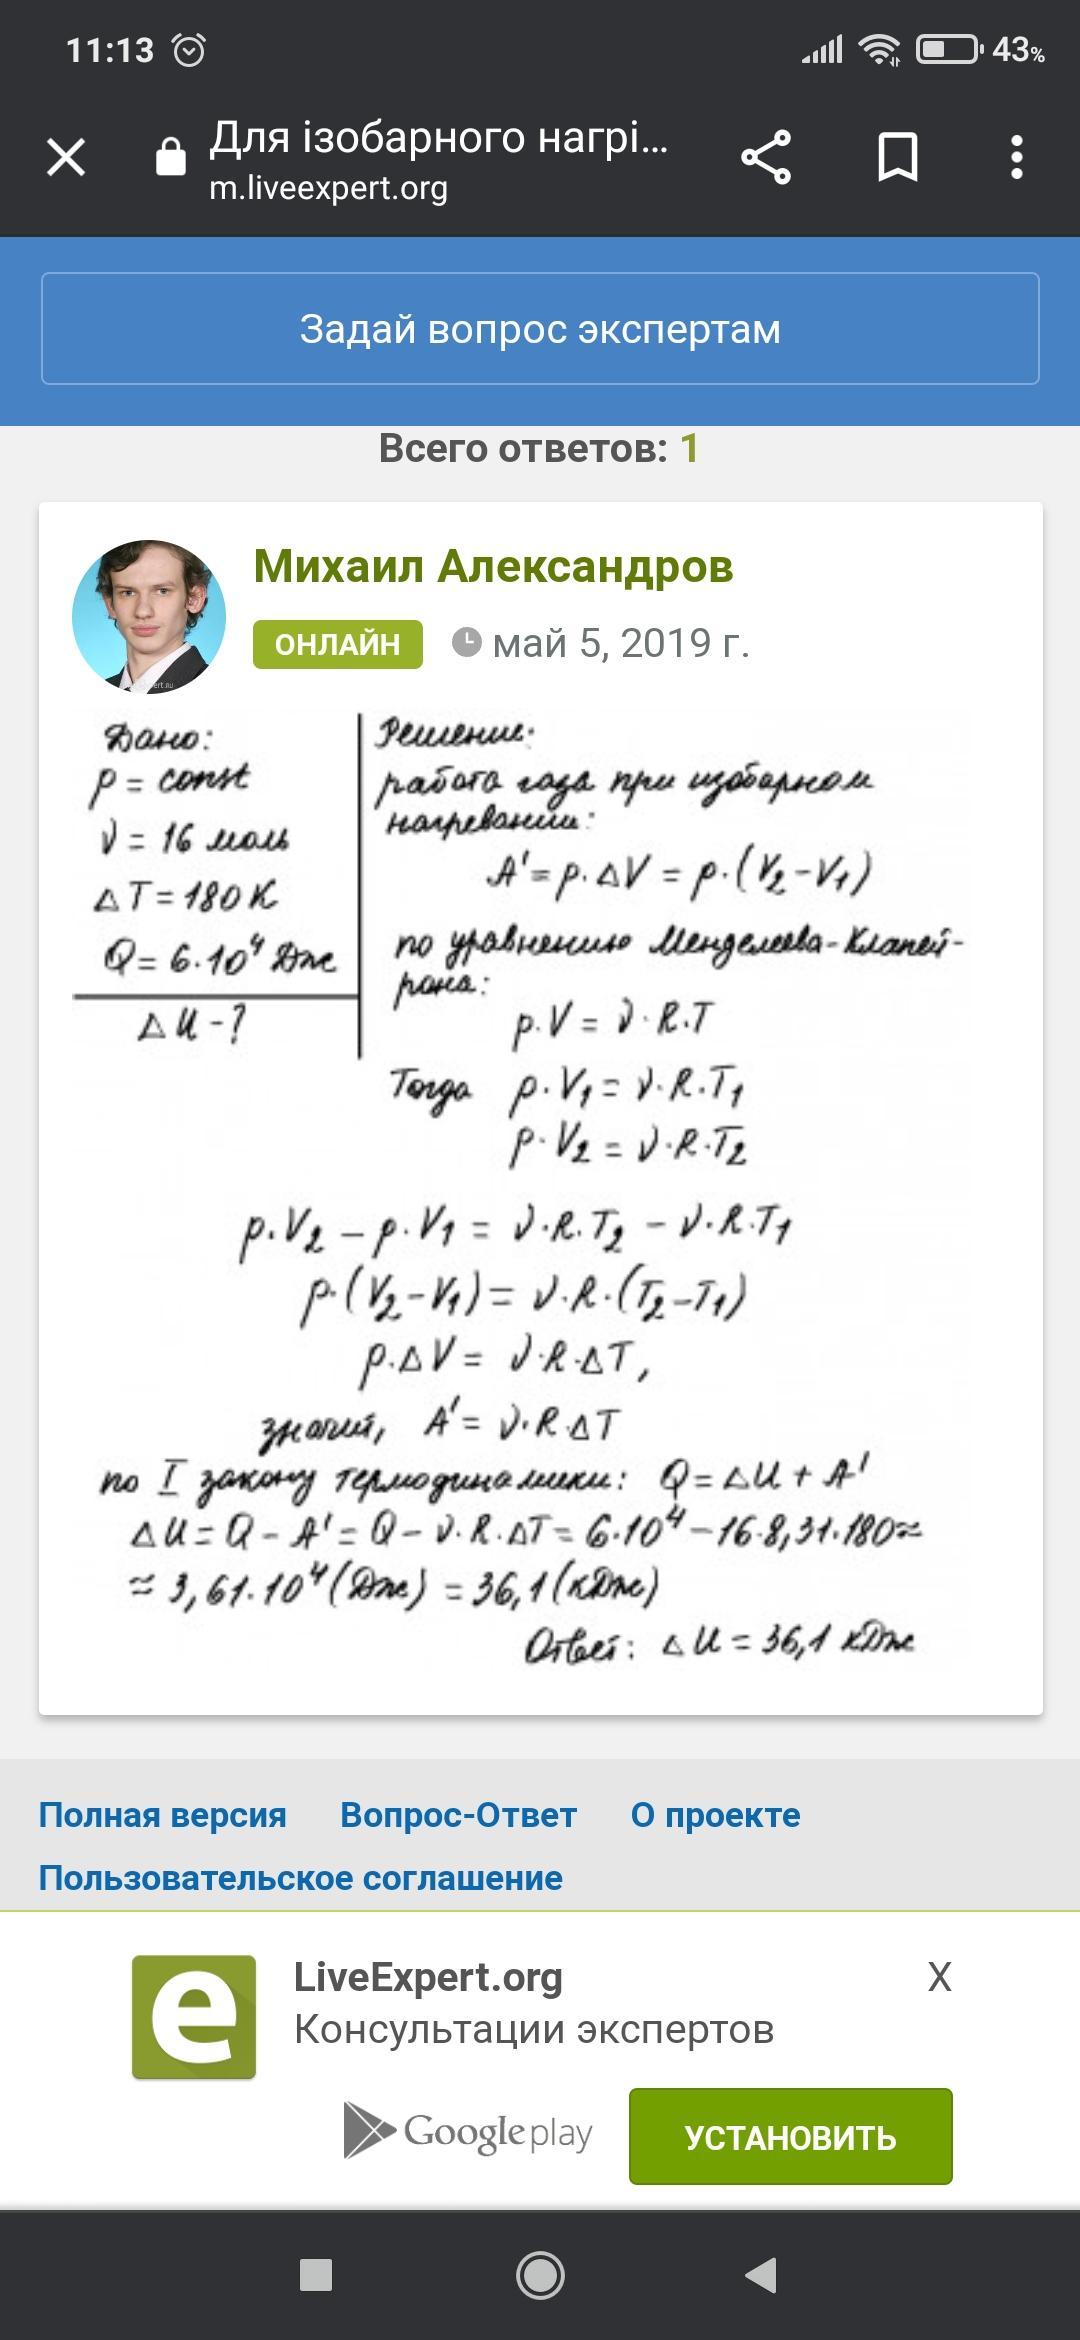 11:13
43%
Для ізобарного нагрі...
m.liveexpert.org
Задай вопрос экспертам
Всего ответов: 1
Михаил Александров
ОНЛАЙН май 5, 2019 г.
Дано:
p = const
ν = 16 моль
ΔT = 180 К
Q = 6·10⁴ Дж
ΔU - ?
Решение:
работа газа при изобарном
нагревании:
A' = p·ΔV = p·(V₂-V₁)
по уравнению Менделеева-Клапей-
рона:
p·V = ν·R·T
Тогда p·V₁ = ν·R·T₁
p·V₂ = ν·R·T₂
p·V₂ - p·V₁ = ν·R·T₂ - ν·R·T₁
p·(V₂-V₁) = ν·R·(T₂-T₁)
p·ΔV = ν·R·ΔT,
значит, A' = ν·R ΔT
по I закону термодинамики: Q = ΔU + A'
ΔU = Q - A' = Q - ν·R·ΔT = 6·10⁴ - 16·8,31·180 ≈
≈ 3,61·10⁴ (Дж) = 36,1 (кДж)
Ответ: ΔU = 36,1 кДж
Полная версия Вопрос-Ответ О проекте
Пользовательское соглашение
e
LiveExpert.org X
Консультации экспертов
Google play УСТАНОВИТЬ